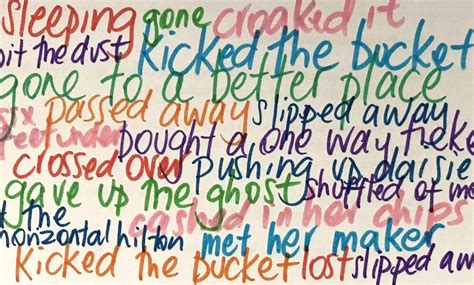 sleeping gone croaked it
bit the dust kicked the bucket
gone to a better place
six passed away slipped away
feet under bought a one way ticke
crossed over pushing up daisie
gave up the ghost shuffled of m
the cashed in her chips
horizontal hilton met her maker
kicked the bucket lost slipped aw